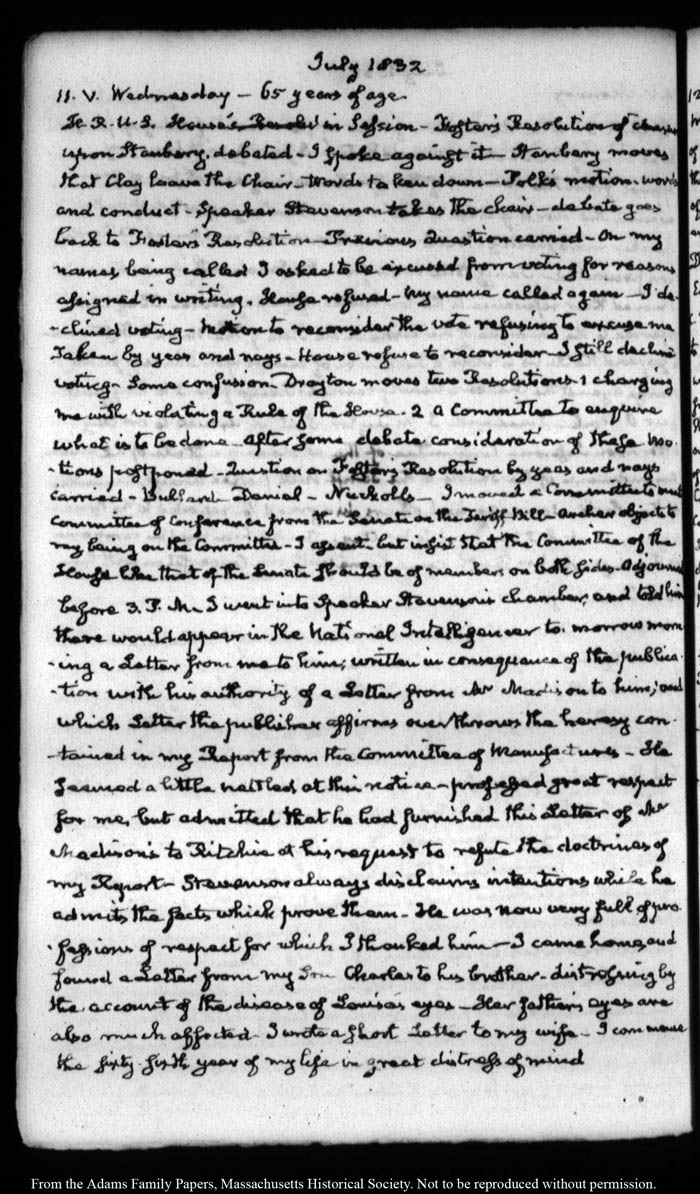 July 1832
11. V. Wednesday – 65 years of age
H. R. U. S. House in Session – Foster's Resolution of censure
upon Stanbery, debated – I spoke against it – Stanbery moves
that Clay leave the Chair – Words taken down – Polk's motion. words
and conduct – Speaker Stevenson takes the chair – debate goes
back to Foster's Resolution – Previous Question carried – On my
name's being called I asked to be excused from voting for reasons
assigned in writing. House refused – My name called again – I de-
-clined voting – Motion to reconsider the vote refusing to excuse me
Taken by yeas and nays – House refuse to reconsider – I still decline
voting – Some confusion – Drayton moves two Resolutions. 1 charging
me with violating a Rule of the House. 2 a Committee to enquire
what is to be done – After some debate consideration of these mo-
-tions postponed – Question on Foster's Resolution by yeas and nays
carried – Bullard – Daniel – Nuckolls – I moved a Committee to meet
Committee of Conference from the Senate on the Tariff Bill – Archer objects to
my being on the Committee – I assent, but insist that the Committee of the
House like that of the Senate should be of members on both sides – Adjourned
before 3. P. M. I went into Speaker Stevenson's chamber, and told him
there would appear in the National Intelligencer to-morrow morn-
-ing a Letter from me to him, written in consequence of the publica-
-tion with his authority of a Letter from Mr Madison to him; and
which Letter the publisher affirms overthrows the heresy con-
-tained in my Report from the Committee of Manufactures – He
seemed a little nettled at this notice – professed great respect
for me, but admitted that he had furnished this Letter of Mr
Madison's to Ritchie at his request to refute the doctrines of
my Report – Stevenson always disclaims intentions while he
admits the facts which prove them – He was now very full of pro-
-fessions of respect for which I thanked him – I came home, and
found a Letter from my Son Charles to his brother – distressing by
the account of the disease of Louisa's eyes – Her father's eyes are
also much affected – I wrote a short Letter to my wife – I commence
the sixty-sixth year of my life in great distress of mind
From the Adams Family Papers, Massachusetts Historical Society. Not to be reproduced without permission.